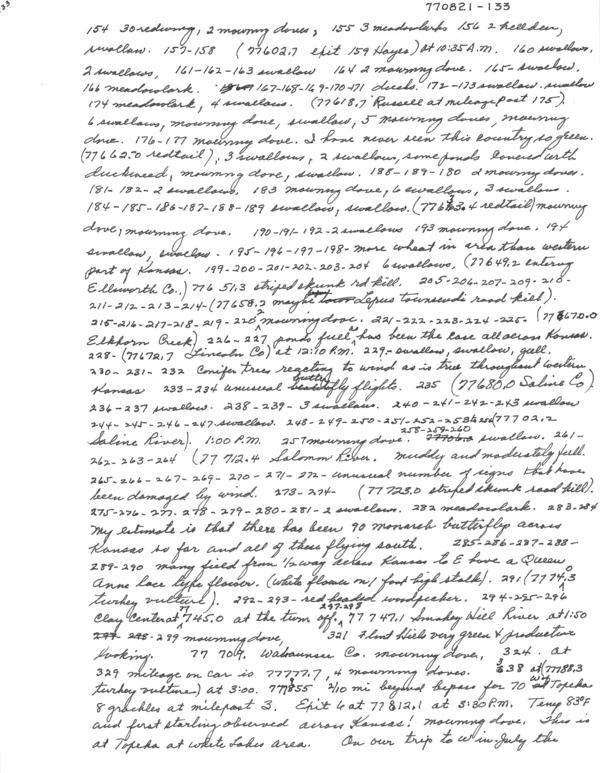 133
770821-133
154 30 redwing, 2 mourning doves, 155 3 meadowlarks 156 2 killdeer,
swallow. 157-158 (77602.7 exit 159 Hayes) at 10:35 A.M. 160 swallows,
2 swallows, 161-162-163 swallow 164 2 mourning dove. 165- swallow.
166 meadowlark. 167-168-169-170-171 ducks. 172-173 swallow. swallow
174 meadowlark, 4 swallows. (77618.7 Russell at milepost 175).
6 swallows, mourning dove, swallow, 5 mourning doves, mourning
dove. 176-177 mourning dove. I have never seen this country so green.
(77662.0 redtail), 3 swallows, 2 swallows, some ponds covered with
duckweed, mourning dove, swallow. 188-189-180 2 mourning doves.
181-182-2 swallows, 183 mourning dove, 6 swallows, 3 swallows.
184-185-186-187-188-189 swallow, swallow. (77633.4 redtail) mourning
dove, mourning dove. 190-191-192-2 swallows 193 mourning dove. 194
swallow, swallow. 195-196-197-198- more wheat in area than western
part of Kansas. 199-200-201-202-203-204 6 swallows, (77649.2 entering
Ellsworth Co.) 77651.3 striped skunk rd kill. 205-206-207-209-210-
211-212-213-214-(77658.2 maybe Lepus townsendi road kill).
215-216-217-218-219-220 2 mourning dove. 221-222-223-224-225- (77670.0
Elkhorn Creek) 226-227 ponds full as has been the case all across Kansas.
228-(77672.7 Lincoln Co) at 12:10 P.M. 229- swallow, swallow, gull.
230-231-232 Conifer trees reacting to wind as is true throughout western
Kansas 233-234 unusual butterfly flight. 235 (77680.0 Saline Co)
236-237 swallow. 238-239-3 swallows. 240-241-242-243 swallow
244-245-246-247 swallow. 248-249-250-251-252-253 (77702.2
Saline River). 1:00 P.M. 257 mourning dove. 258-259-260 swallow. 261-
262-263-264 (77712.4 Solomon River. muddy and moderately full.
265-266-267-269-270-271-272- unusual number of signs that have
been damaged by wind. 273-274- (77723.0 striped skunk road kill).
275-276-277-278-279-280-281-2 swallows. 282 meadowlark. 283-284
My estimate is that there has been 90 monarch butterflys across
Kansas so far and all of these flying south. 285-286-287-288-
289-290 many field from 1/2 way across Kansas to E have a Queen
Anne lace type flower. (white flower on 1 foot high stalk). 291 (7774.3
turkey vulture). 292-293- red headed woodpecker. 294-295-296
Clay Center at 77745.0 at the turn off. 297-298 77747.1 Smokey Hill River at 1:50
299 mourning dove, 321 Flint Hills very green & productive
looking. 77 709. Wabaunsee Co. mourning dove, 324. at
329 mileage on car is 77777.7, 4 mourning doves. 338 at (77788.3
turkey vulture) at 3:00. 77855 2/10 mi beyond bypass for 70 Topeka
8 grackles at milepost 3. Exit 6 at 77812.1 at 3:30 P.M. Temp 83°F
and first starling observed across Kansas! mourning dove. This is
at Topeka at white Lakes area. On our trip to W in July the